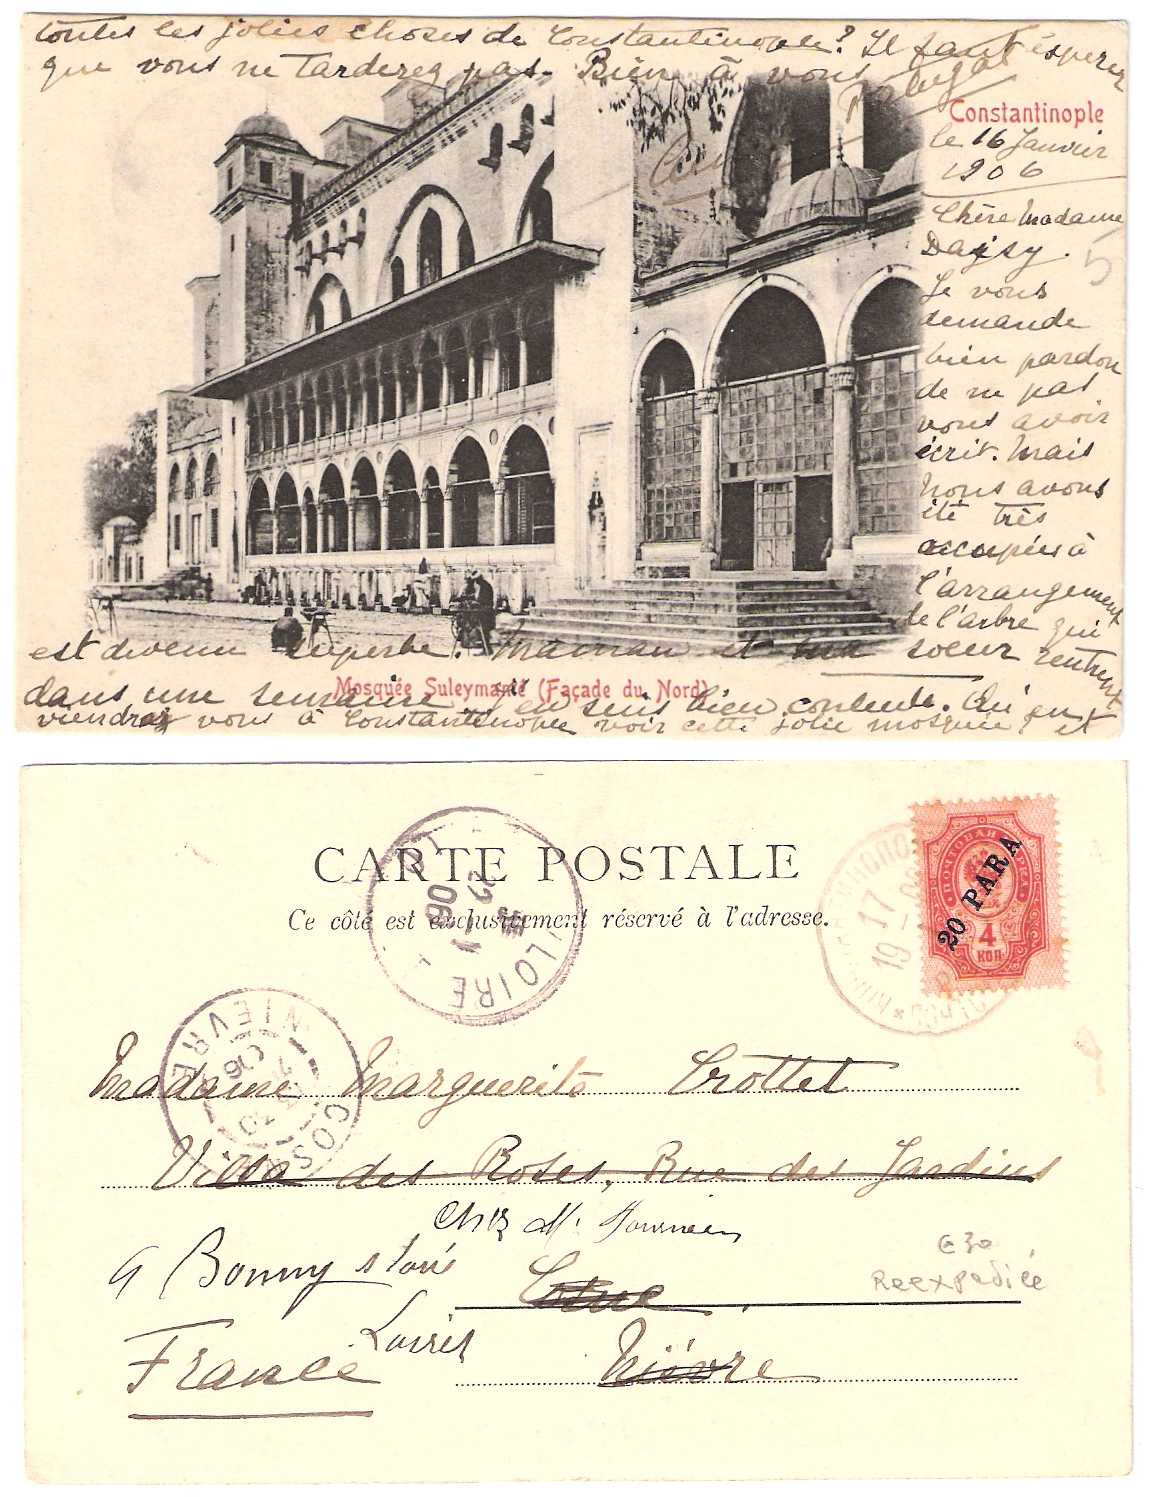 Constantinople
le 16 Janvier
1906
Chère Madame
Daisy.
Je vous
demande
bien pardon
de ne pas
vous avoir
écrit. Mais
nous avons
été très
occupées à
l'arrangement
de l'arbre qui
est devenu superbe. Maman et ma soeur rentrent
dans une semaine, j'en suis bien contente. Qui en
viendrez vous à Constantinople voir cette jolie mosquée, et
toutes les jolies choses de Constantinople? Il faut espérer
que vous ne tarderez pas. Bien à vous
Mosquée Suleymanié (Façade du Nord)
5
CARTE POSTALE
Ce côté est exclusivement réservé à l'adresse.
LOIRE
06
NIEVRE
COSNE
06
17
19
ПОЧТОВАЯ МАРКА
20 PARA
4
КОП
Madame Marguerite Crottet
Villa des Roses, Rue des Jardins
Chez Mr
à Bonny s/Loire
Cosne
Loiret
Nièvre
France
€30
Reexpediée